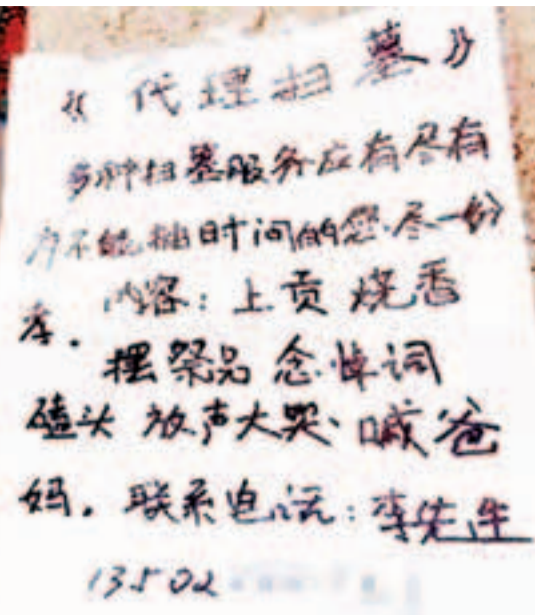 《代理扫墓》
多种扫墓服务应有尽有
为不能抽时间的您.尽一份
孝. 内容：上贡 烧香
摆祭品 念悼词
磕头 放声大哭. 喊爸
妈. 联系电话：李先生
13502